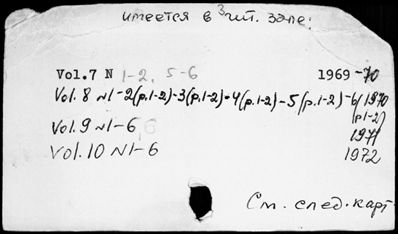 имеется в 3 чит. зале:
Vol.7 N 1-2, 5-6 1969-70
Vol. 8 N1-2(p.1-2)-3(p.1-2)-4(p.1-2)-5(p.1-2)-6(p.1-2) 1970
Vol. 9 N1-6 1971
Vol. 10 N1-6 1972
См. след. карт